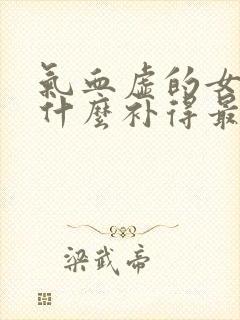 氣血虛的女
什麼补得最
梁武帝